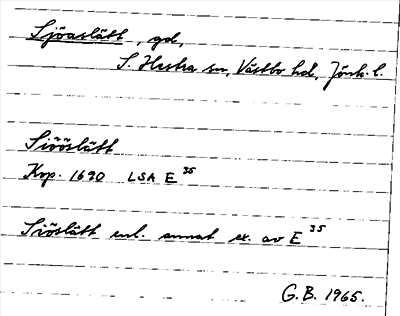 Sjöaslätt, gd,
S. Hestra sn, Västbo hd, Jönk. l.
Siööslätt
Kop. 1690 LSA E 35
Siöslätt enl. annat ex. av E 35
G.B. 1965.